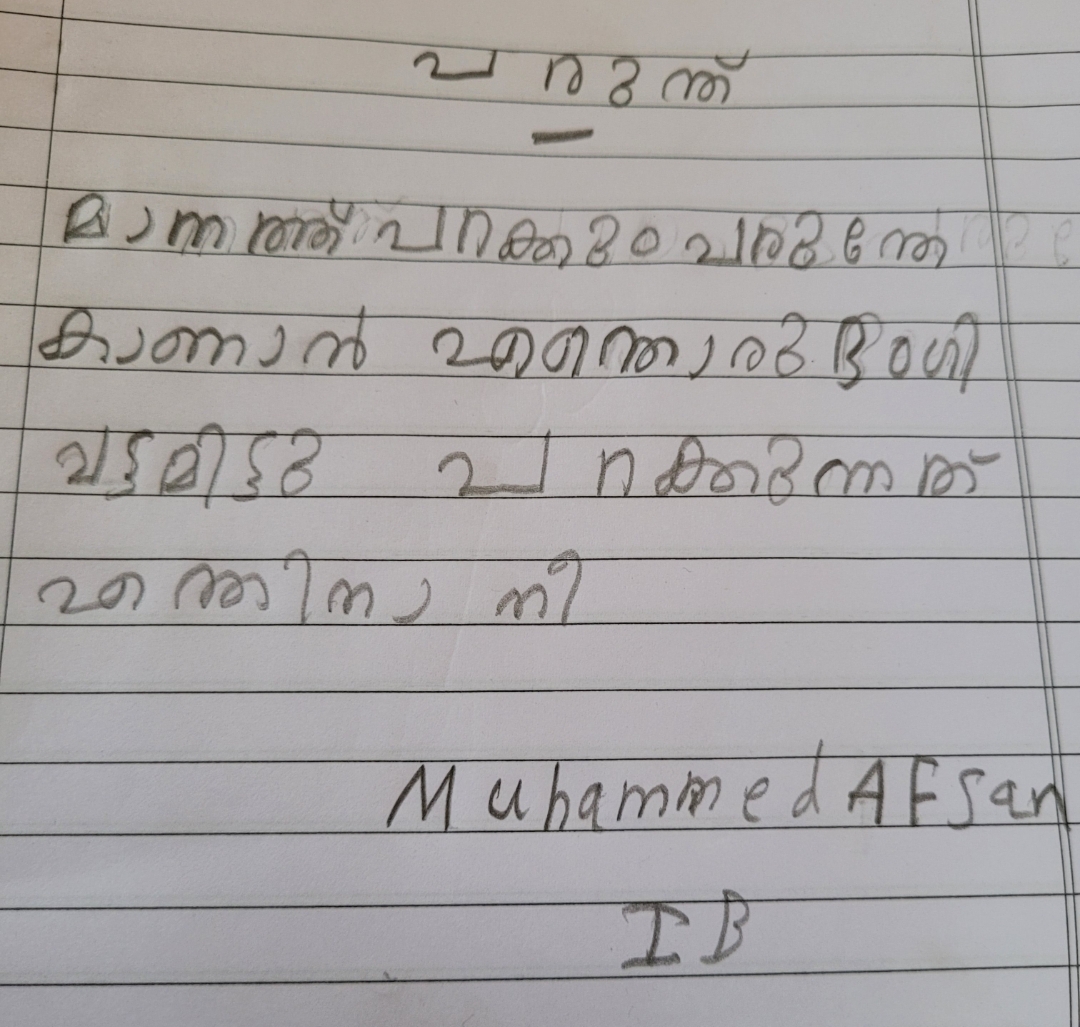 പരുന്ത്
മാനത്ത് പറക്കും പരുന്തേ
കാണാൻ എന്തൊരു ഭംഗി
വട്ടമിട്ടു പറക്കുന്നത്
എന്തിനാ നീ
Muhammed AFsan
I B